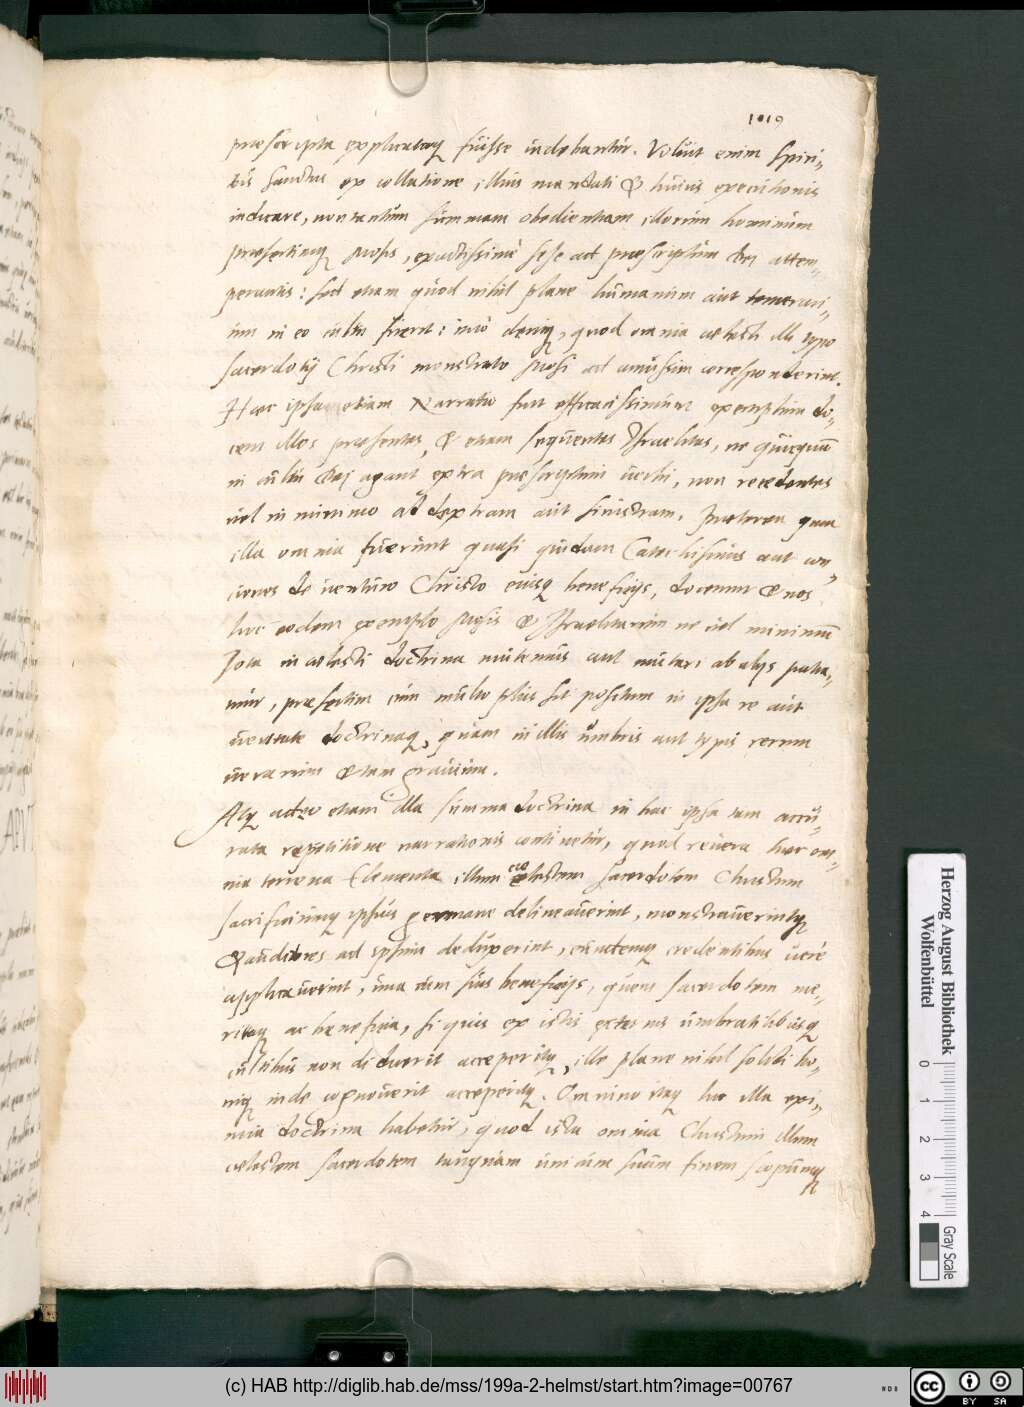 1019
praescripta explicataq fuisse videbantur. Voluit enim spiri„
tus sanctus ex collatione illius mandati & huius executionis
indicare, non tantum summam obedientiam illorum hominum
praesertimq Mosis, exactissime sese ad praescriptum Dei attem„
perantis: sed etiam quod nihil plane humanum aut temerari„
um in eo cultu fuerit: imo deniq, quod omnia coelesti illi typo
sacerdotij Christi monstrato Mosi ad amussim corresponderint.
Haec ipsa etiam Narratio fuit efficacissimum exemplum do„
cens illos praesentes, & etiam sequentes Israelitas, ne quicquam
in cultu Dei agant extra praescriptum verbi, non recedentes
vel in minimo ad dextram aut sinistram. Praeterea quia
illa omnia fuerunt quasi quidam Catechismus aut con„
ciones de venturo Christo eiusq beneficijs, docemur & nos
hoc eodem exemplo Mosis & Israelitarum ne vel minimum
Iota in coelesti doctrina mutemus aut mutari ab alijs patia„
mur, praesertim cum multo plus sit positum in ipsa re aut
veritate doctrinaq, quam in illis umbris aut typis rerum
verarum & tam gravium.
Atq adeo etiam illa summa doctrina in hac ipsa tam accu„
rata repetitione narrationis continetur, quod revera haec om„
nia terrena Elementa illum coelestem sacerdotem Christum
sacrificiumq ipsius germane delineaverint, monstraverintq
& auditores ad ipsum deduxerint, eundemq credentibus vere
applicaverint, una cum suis beneficijs, quem sacerdotem me„
ritaq ac beneficia, si quis ex istis externis umbratilibusq
cultibus non didicerit acceperitq, ille plane nihil solidi bo„
niq inde cognoverit acceperitq. Omnino itaq hic illa exi„
mia doctrina habetur, quod ista omnia Christum illum
coelestem sacerdotem tanquam unicum suum finem scopumq
Herzog August Bibliothek
Wolfenbüttel
0 1 2 3 4
Gray Scale
(c) HAB http://diglib.hab.de/mss/199a-2-helmst/start.htm?image=00767
cc BY SA